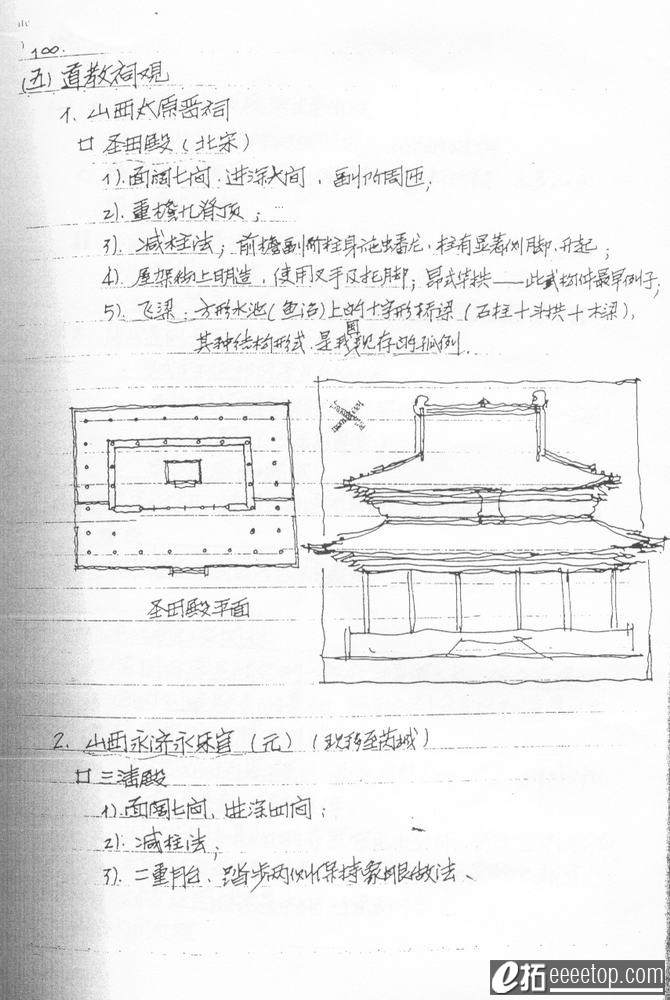 100.
(五) 道教祠观
1、山西太原晋祠
口 圣母殿 (北宋)
1). 面阔七间、进深六间、副阶周匝;
2). 重檐九脊顶;
3). 减柱法; 前檐副阶柱身施蟠龙、柱有显著侧脚、升起;
4). 屋架彻上明造、使用叉手及托脚; 昂式华拱——此式构件最早例子;
5). 飞梁: 方形水池(鱼沼)上的十字形桥梁 (石柱+斗拱+木梁),
其种结构形式, 是我国现存的孤例.
圣母殿平面
2. 山西永济永乐宫 (元) (现移至芮城)
口 三清殿
1). 面阔七间、进深四间;
2). 减柱法;
3). 二重月台、踏步两侧保持象眼做法、
e拓 eeeetop.com